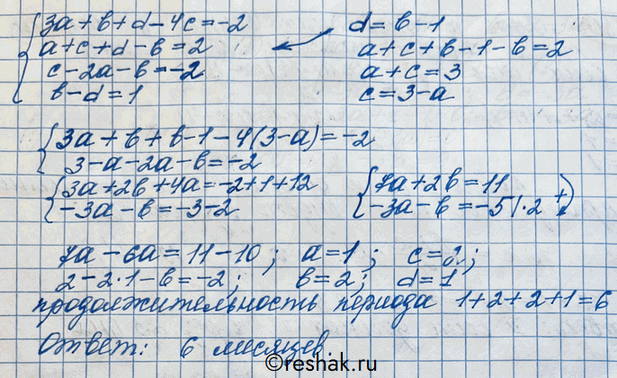 3a+b+d-4c=-2
a+c+d-b=2
c-2a-b=-2
b-d=1
d=b-1
a+c+b-1-b=2
a+c=3
c=3-a
3a+b+b-1-4(3-a)=-2
3-a-2a-b=-2
3a+2b+4a=-2+1+12
-3a-b=-3-2
7a+2b=11
-3a-b=-5|·2 +
7a-6a=11-10; a=1; c=2;
2-2·1-b=-2; b=2; d=1
продолжительность периода 1+2+2+1=6
Ответ: 6 месяцев
©reshak.ru